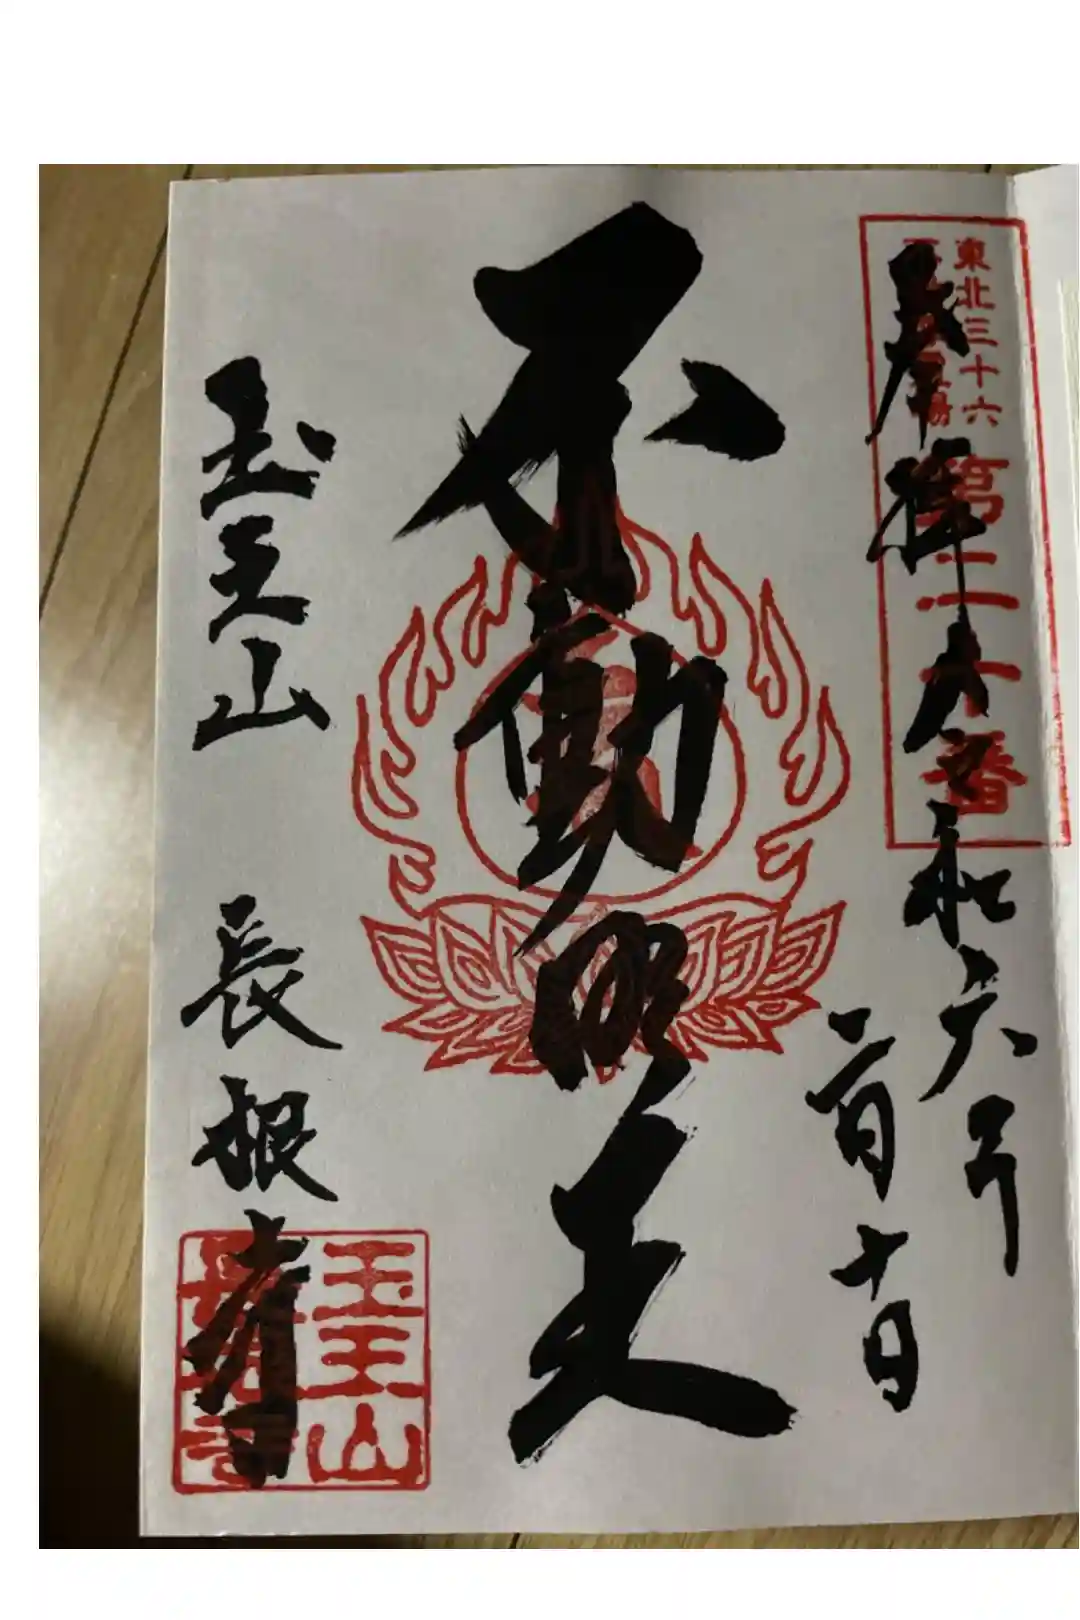 東北三十六
不動尊霊場
第二十番
奉拝
令和六年
二月十日
不動明王
玉王山 長根寺
玉王山
長根寺